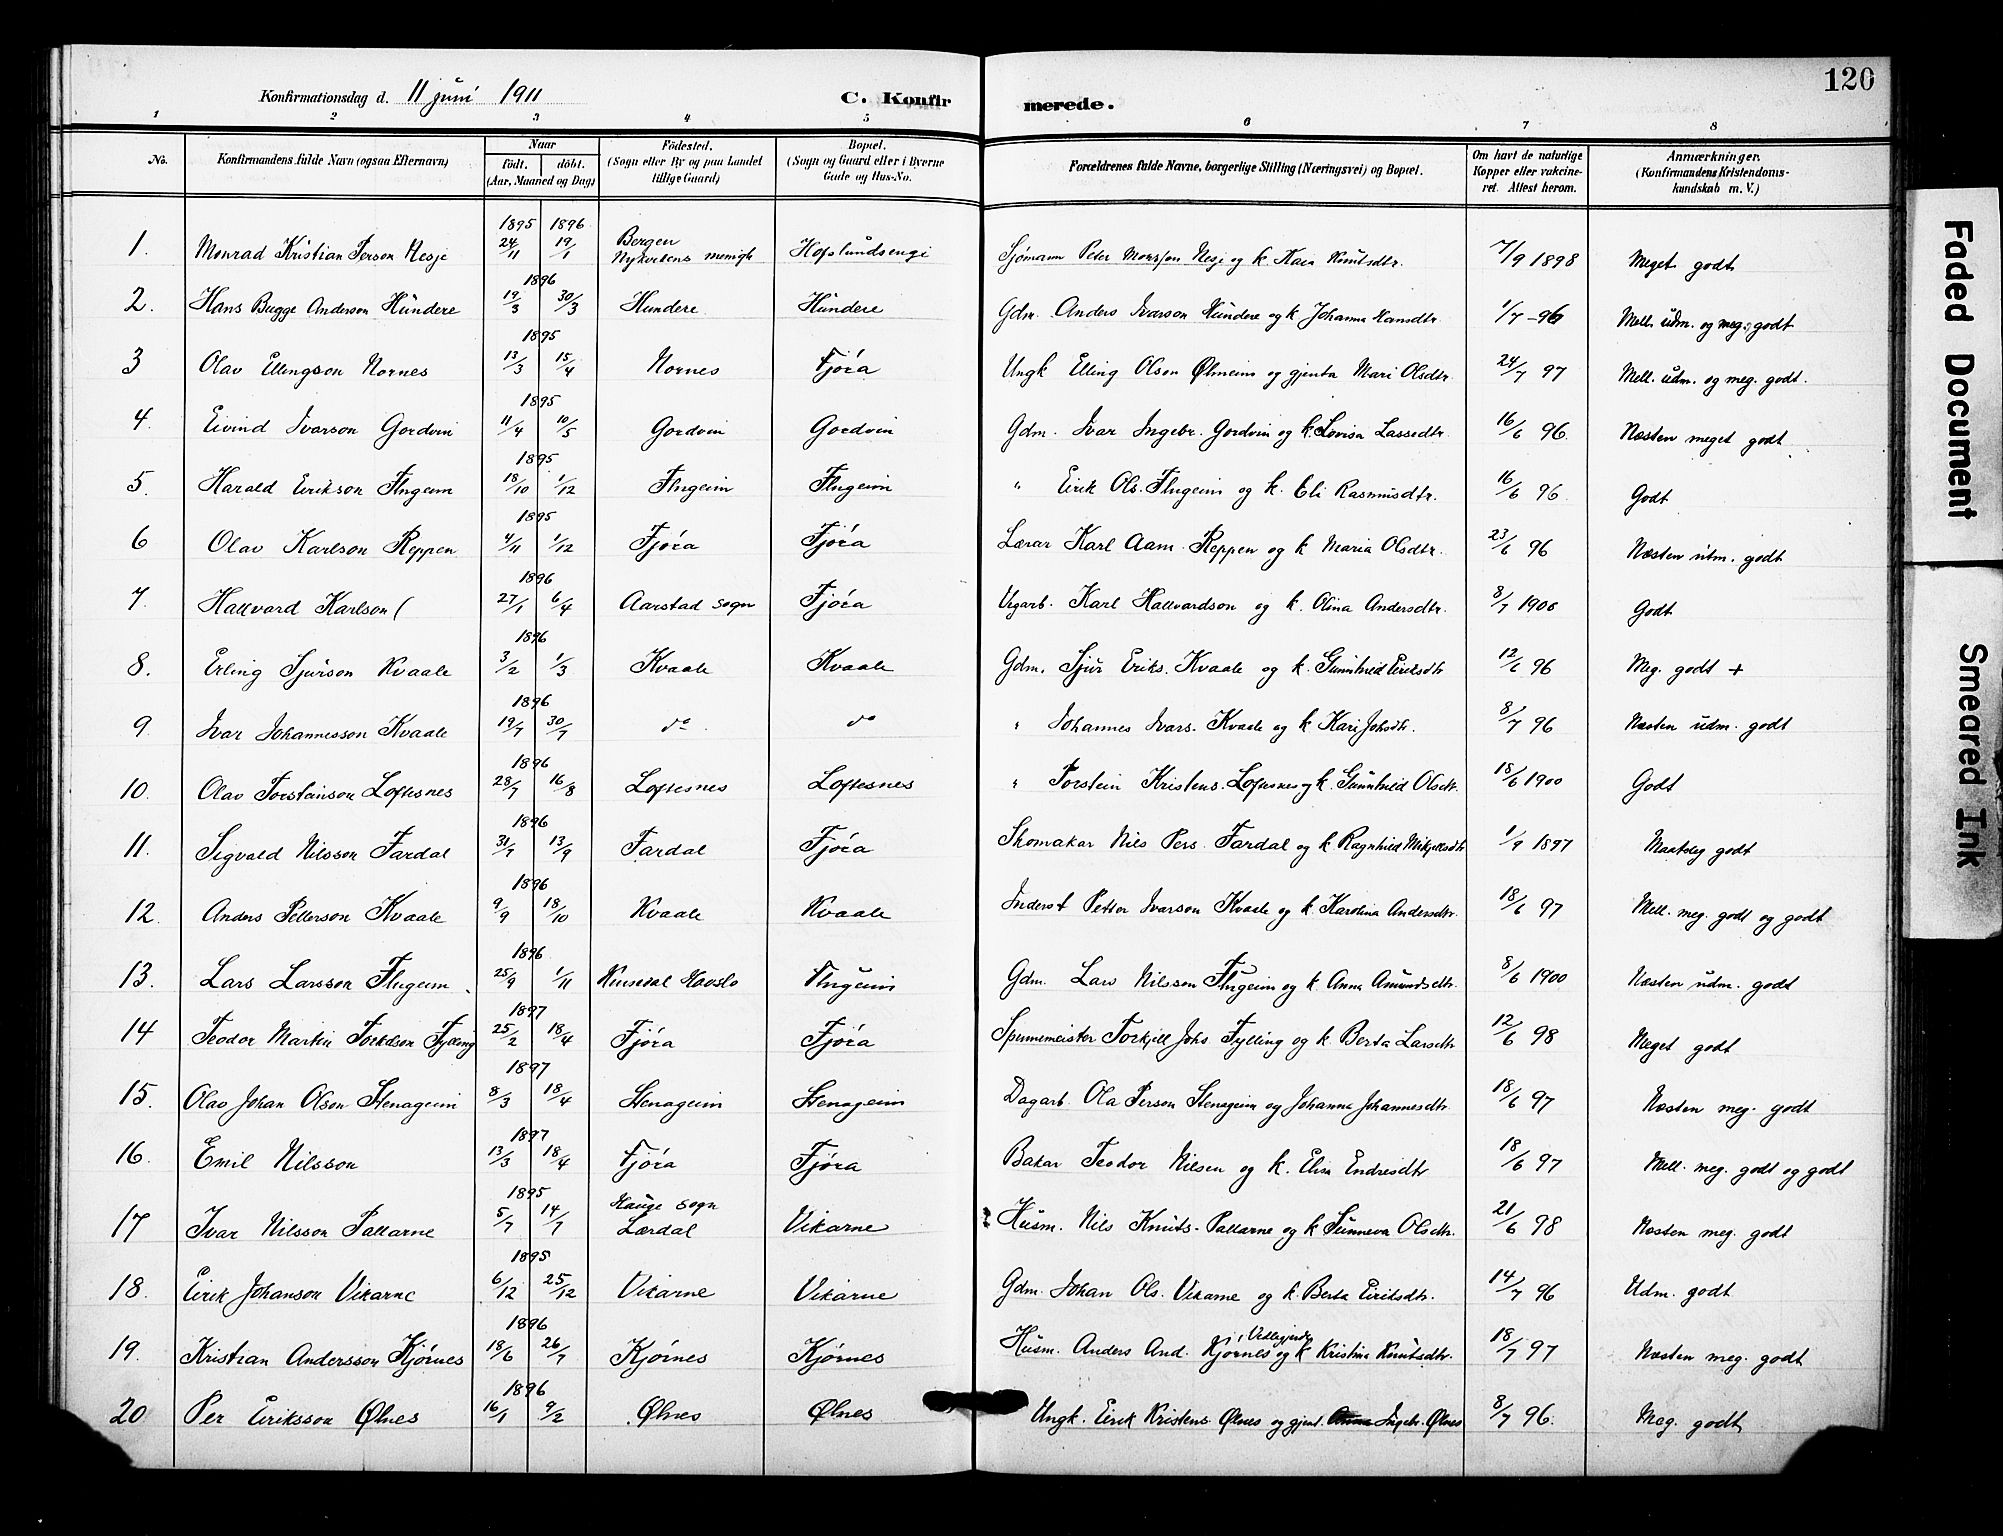 120
Konfirmationsdag d. 11 juni 1911 C. Konfirmerede.
1 2 3 4 5 6 7 8
No. Konfirmandens fulde Navn (ogsaa Efternavn) Naar födt. döbt. (Aar, Maaned og Dag) Födested. (Sogn eller By og paa Landet tillige Gaard) Bopæl. (Sogn og Gaard eller i Byerne Gade og Hus-No. Forældrenes fulde Navne, borgerlige Stilling (Næringsvei) og Bopæl. Om havt de naturlige Kopper eller vakcineret. Attest herom. Anmærkninger. (Konfirmandens Kristendomskundskab m. V.)
1895 1896
1. Monrad Kristian Person Nesje 24/11 19/1 Bergen Nykirkens menigh Hofslundsengi Sjømann Peter Monsson Nesje og k. Kaia Knutsdtr. 7/9 1898 Meget godt
1896
2. Hans Bugge Anderson Hundere 19/3 30/3 Hundere Hundere Gdm. Anders Ivarson Hundere og k. Johanna Hansdtr 1/7-96 Mell. udm. og meg. godt
1895
3 Olav Ellingson Nornes 13/3 15/4 Nornes Fjöra Ungk Elling Olson Ølmeim og gjenta Mari Olsdtr 24/7 97 Mell. udm. og meg. godt.
1895
4. Eivind Ivarson Gordvin 11/4 10/5 Gordvin Gordvin Gdm. Ivar Ingebr. Gordvin og k. Lovisa Lassedtr. 16/6 96. Næsten meget godt
1895
5. Harald Eirikson Flugeim 18/10 1/12 Flugeim Flugeim " Eirik Ols. Flugeim og k. Eli Rasmusdtr. 16/6 96. Godt
1895
6 Olav Karlson Reppen 4/11 1/12 Fjöra Fjöra Lærar Karl Aam. Reppen og k Maria Olsdtr. 23/6 96 Næsten utm. godt
1896
7. Hallvard Karlson ( 27/1 6/4 Aarstad sogn Fjöra Vegarb. Karl Hallvardson og k. Olina Andersdtr. 8/7 1906 Godt
1896
8. Erling Sjurson Kvaale 3/2 1/3 Kvaale Kvaale Gdm. Sjur Eriks. Kvaale og k. Gunnhild Eiriksdtr 12/6 96 Meg. godt +
1896
9. Ivar Johannesson Kvaale 19/7 30/7 do do " Johannes Ivars. Kvaale og k Kari Johsdtr. 8/7 96 Næsten udm. godt
1896
10. Olav Torsteinson Loftesnes 28/7 16/8 Loftesnes Loftesnes " Torstein Kristens. Loftesnes og k. Gunnhild Olsdtr. 18/6 1900 Godt
1896
11. Sigvald Nilsson Fardal 31/7 13/9 Fardal Fjöra Skomakar Nils Pers. Fardal og k. Ragnhild Mikjellsdtr 1/9 1897 Maateleg godt
1896
12. Anders Petterson Kvaale 9/9 18/10 Kvaale Kvaale Inderst Petter Ivarson Kvaale og k. Karolina Andersdtr. 18/6 97 Mell. meg. godt og godt
1896
13. Lars Larsson Flugeim 25/9 1/11 Kinsedal Havslo Flugeim Gdm. Lars Nilsson Flugeim og k. Anna Amundsdtr. 8/6 1900 Næsten udm. godt
1897
14 Teodor Martin Torkdson Fylling 25/2 18/4 Fjöra Fjöra Spinnemeister Torkjell Johs Fylling og k. Berta Larsdtr 12/6 98 Meget godt
1897
15. Olav Johan Olson Stenageim 8/3 18/4 Stenageim Stenageim Dagarb. Ola Person Stenageim og Johanna Johannesdtr. 18/6 97 Næsten meg. godt
1897
16. Emil Nilsson 13/3 18/4 Fjöra Fjöra Bakar Teodor Nilsen og k. Elisa Endresdtr 18/6 97 Mell. meg. godt og godt
1895
17 Ivar Nilsson Pallarne 5/7 14/7 Hauge sogn Lærdal Vikarne Husm. Nils Knuts. Pallarne og k Sunneva Olsdtr. 21/6 98 Næsten meg. godt
1895
18. Eirik Johanson Vikarne 6/12 25/12 Vikarne Vikarne Gdm. Johan Ols. Vikarne og k. Berta Eiriksdtr. 14/7 96 Udm. godt
1896
19. Kristian Andersson Kjörnes 18/6 26/7 Kjörnes Kjörnes Husm. Anders And. Kjörnes og k Kristina Knutsdtr. 18/7 97 Næsten meg. godt
1896
20 Per Eiriksson Ølnes 16/1 9/2 Ølnes Ølnes Ungk. Eirik Kristens. Ølnes og gjent. Anna Ingebr. Ølnes 8/7 96. Meg. godt
Faded Document
Smeared Ink